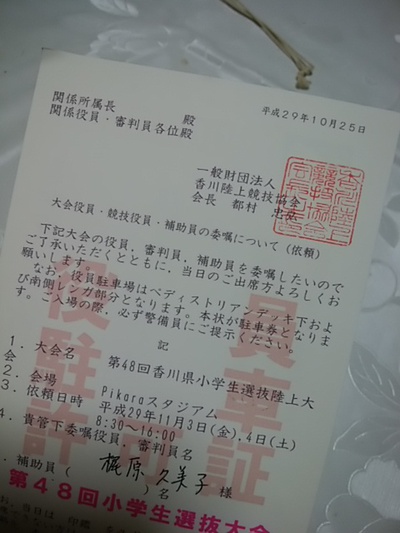 平成29年10月25日
関係所属長 殿
関係役員・審判員各位殿
一般財団法人
香川陸上競技協会
会長 都村 忠
大会役員・競技役員・補助員の委嘱について(依頼)
下記大会の役員,審判員,補助員を委嘱したいので
ご了承いただくとともに,当日のご出席方よろしくお
願いします。
なお,役員駐車場はペディストリアンデッキ下およ
び南側レンガ部分となります。本状が駐車券となりま
す。ご入場の際,必ず警備員にご提示ください。
記
1.大会名 第48回香川県小学生選抜陸上大
会
2.会場 Pikaraスタジアム
3.依頼日時 平成29年11月3日(金),4日(土)
8:30~16:00
4.貴管下委嘱役員,審判員名
梶原 久美子 様
補助員( )名
役員車証
駐許可
第48回小学生選抜大会